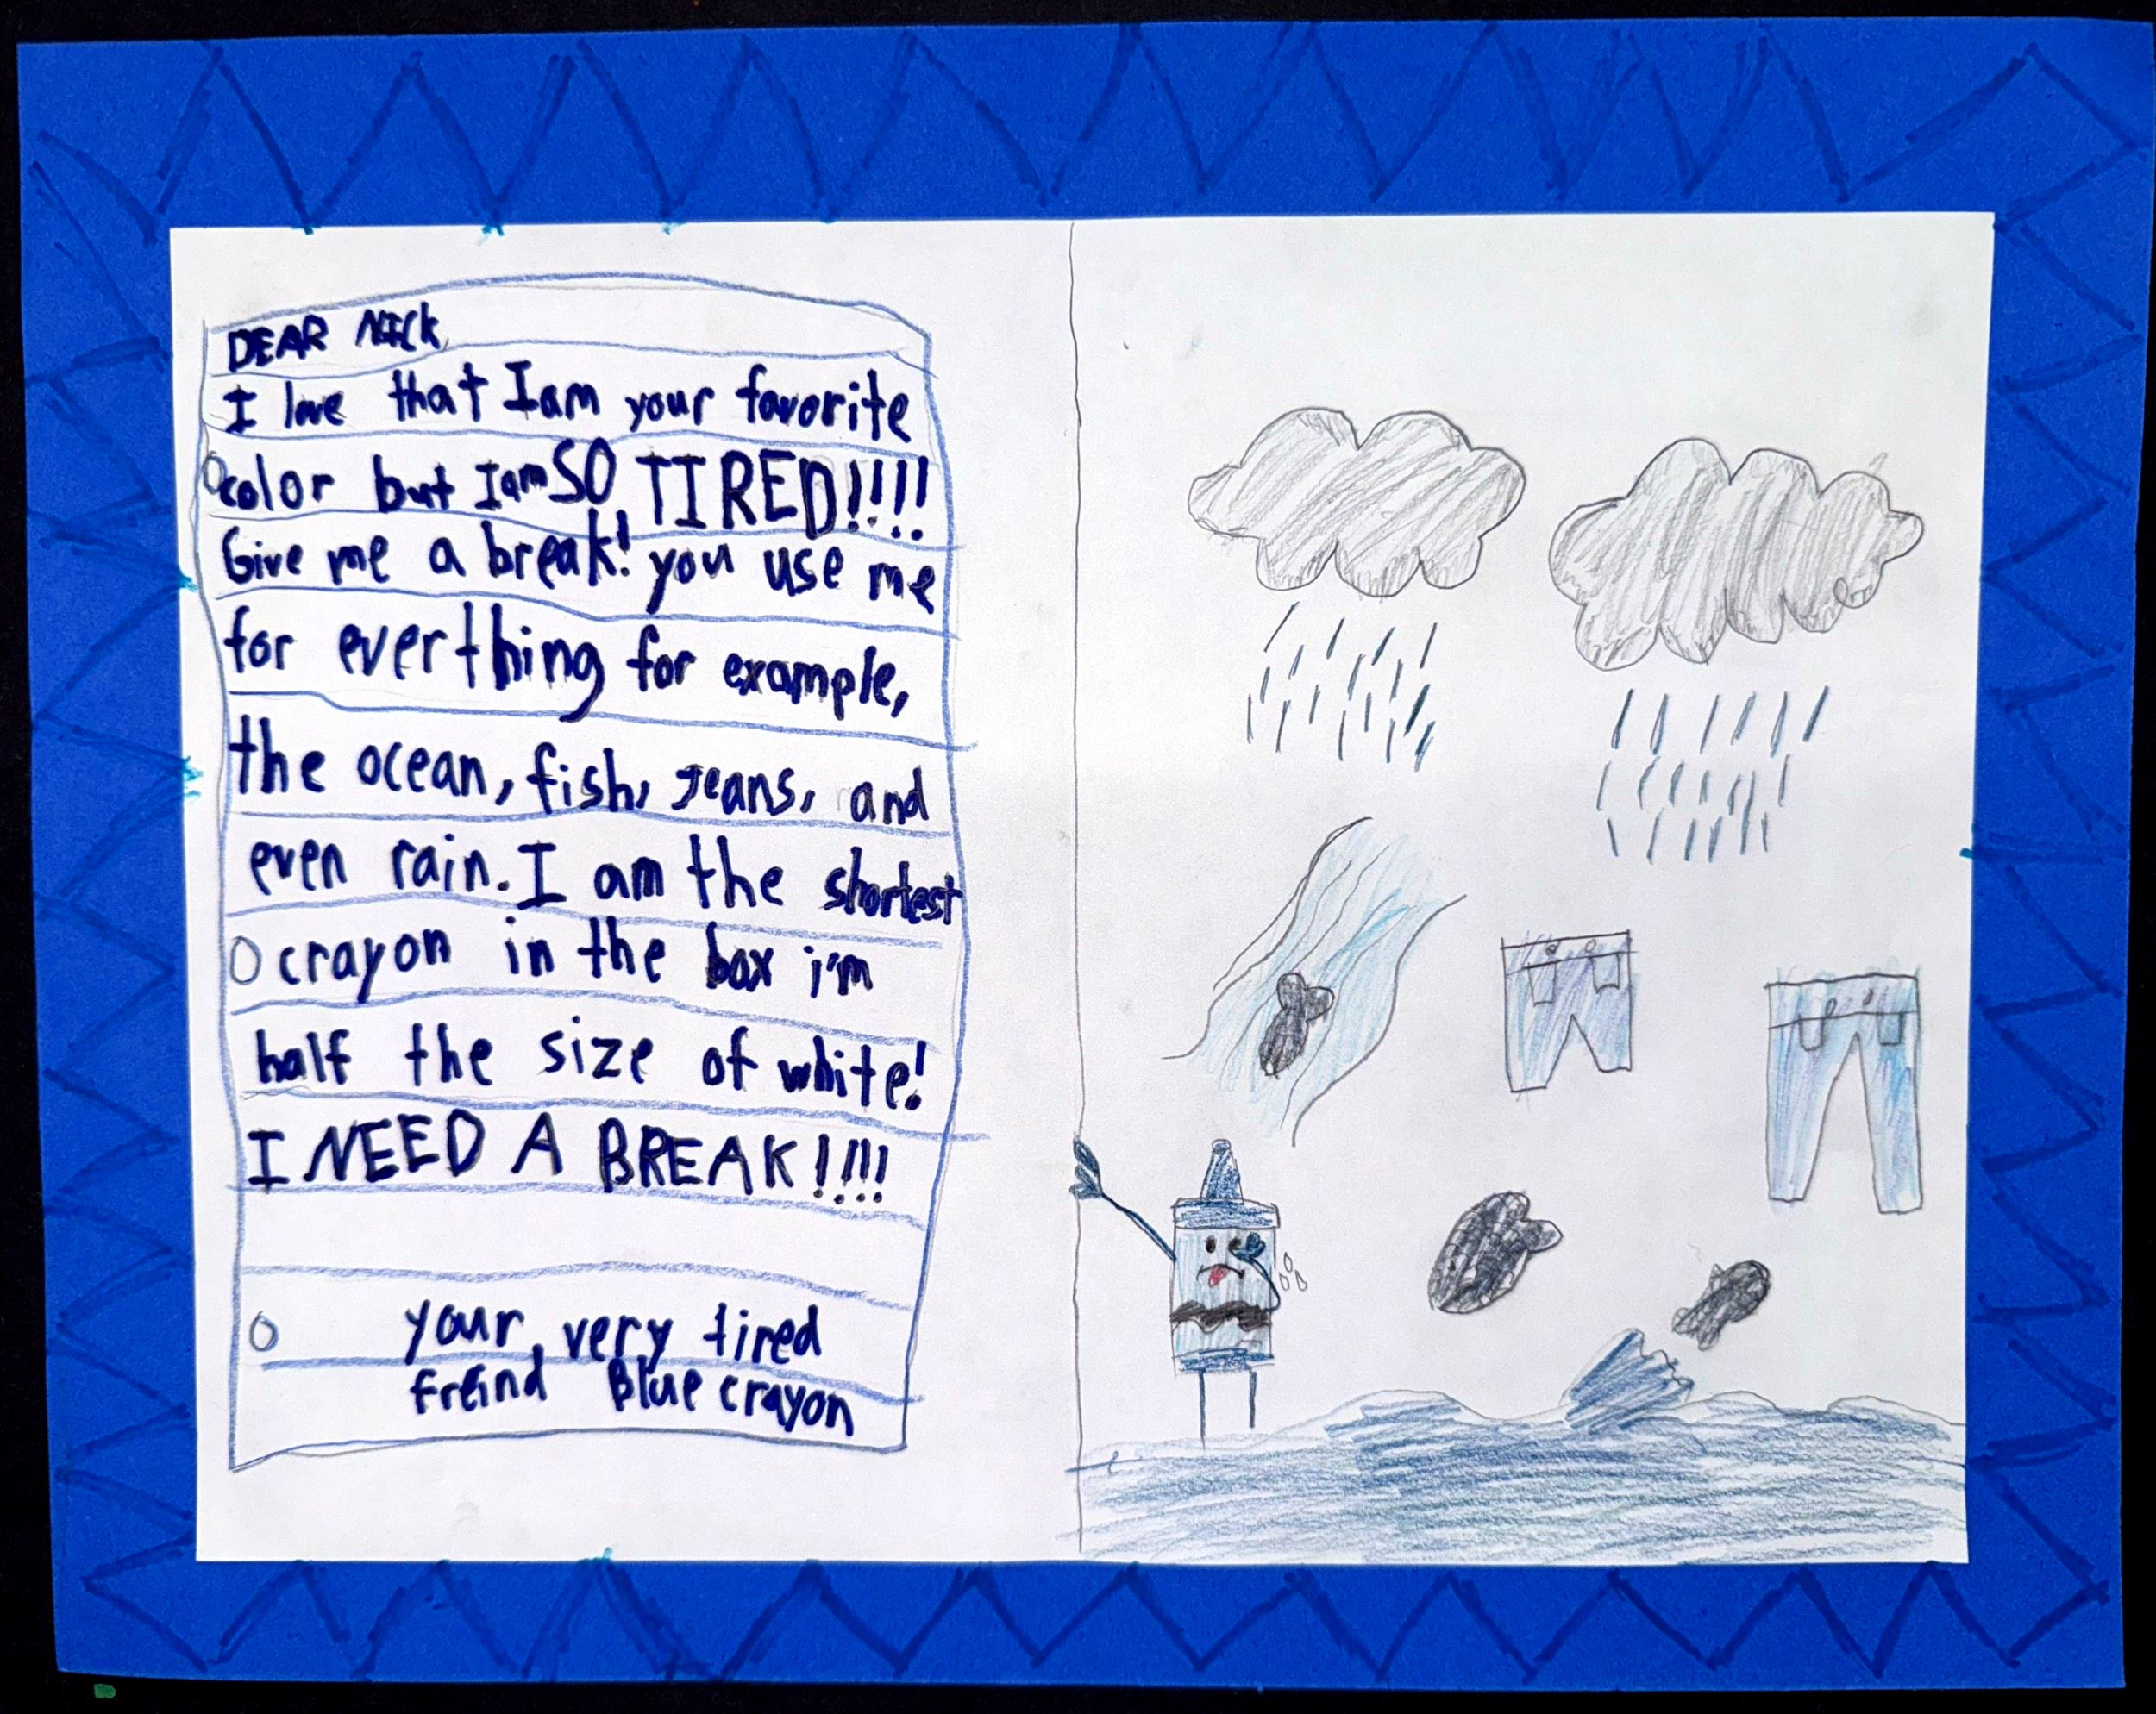 DEAR NICK,
I love that I am your favorite
color but I am SO TIRED!!!!
Give me a break! you use me
for everthing for example,
the ocean, fish, Jeans, and
even rain. I am the shortest
crayon in the box i'm
half the size of white!
I NEED A BREAK!!!!
your very tired
freind Blue crayon